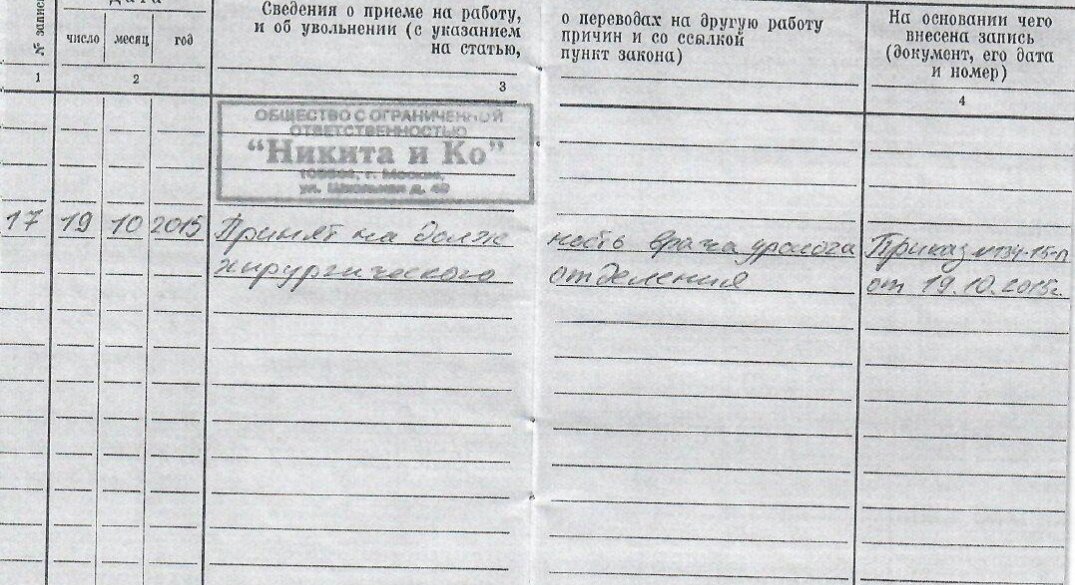 Дата
№ записи
число месяц год
Сведения о приеме на работу,
и об увольнении (с указанием
на статью,
о переводах на другую работу
причин и со ссылкой
пункт закона)
На основании чего
внесена запись
(документ, его дата
и номер)
1 2 3 4
ОБЩЕСТВО С ОГРАНИЧЕННОЙ
ОТВЕТСТВЕННОСТЬЮ
"Никита и Ко"
г. Москва,
ул. Школьная д. 49
17 19 10 2015 Принят на долж ность врача уролога Приказ №134-15-п
хирургического отделения от 19.10.2015г.